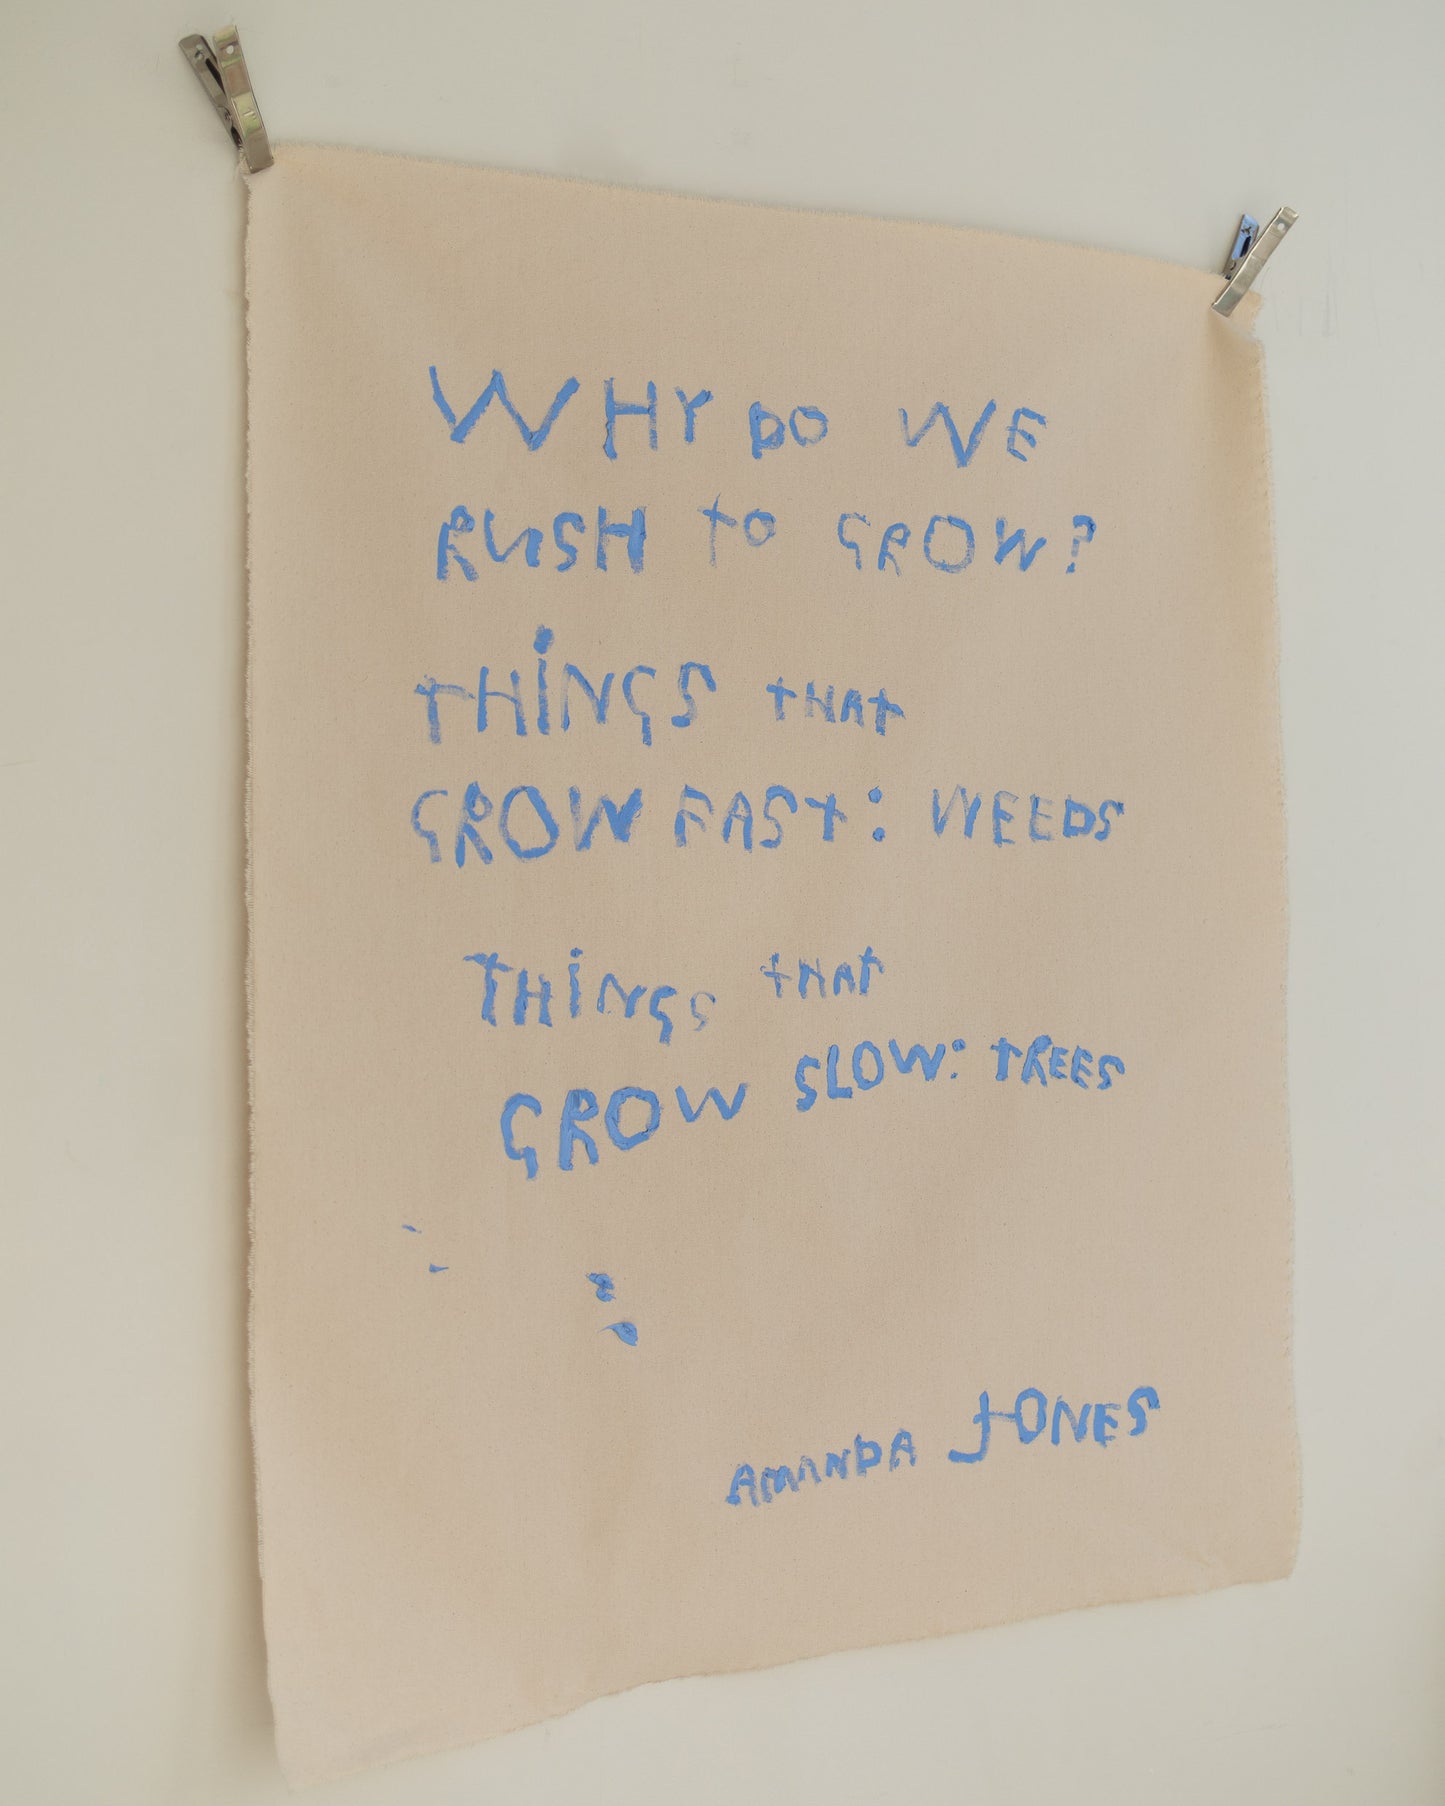 WHY DO WE
RUSH TO GROW?
THiNGS THAT
GROW FAST: WEEDS
THiNGS THAT
GROW SLOW: TREES
AMANDA JONES